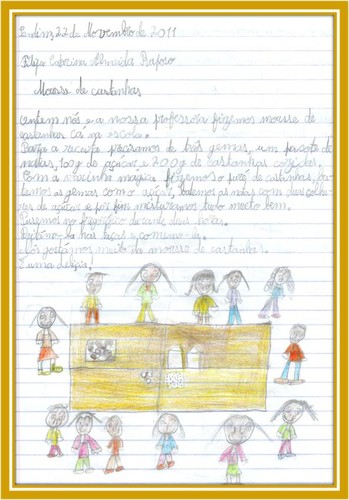 22 de Novembro de 2011
Filipa Caterina Almeida Raposo
Mousse de castanhas
Ontem nós e a nossa professora fizemos mousse de
castanhas cá na escola.
Para a receita precisamos de três gemas, um pacote de
natas, 100g de açúcar e 200g de castanhas cozidas.
Com a varinha mágica fizemos o puré de castanhas, ba-
temos as gemas com o açúcar, batemos as natas com duas colhe-
res de açúcar e por fim misturámos tudo muito bem.
Pusemos no frigorífico durante duas horas.
nas taças e comemo-la.
Nós gostámos muito da mousse de castanhas.
É uma delícia.